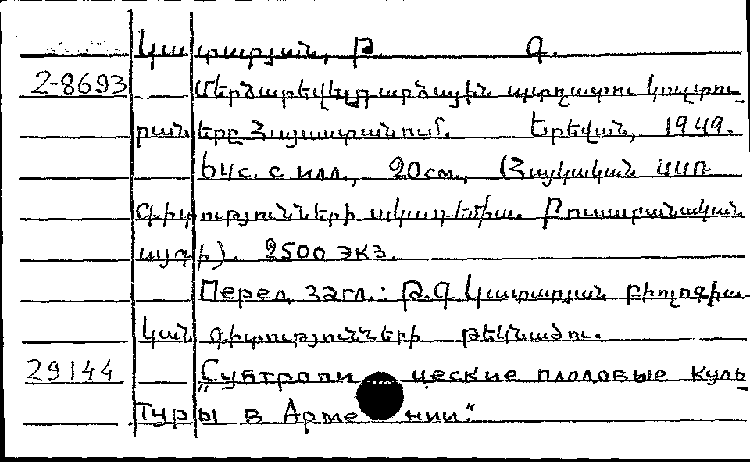 Կատարյան, Թ. Գ.
2-8693 Մերձարեվադարձային պտղատու կուլտու-
րաները Հայաստանում. Երեվան, 1949.
64с. с илл., 20см., (Հայկական ՍՍՌ
Գիտությունների ակադեմիա. Բուսաբանական
այգի). 2500 экз.
Перед загл.: Թ.Գ Կատարյան բիոլոգիա-
կան գիտությունների թեկնածու.
29144 "Субтропические плодовые куль-
туры в Армении"